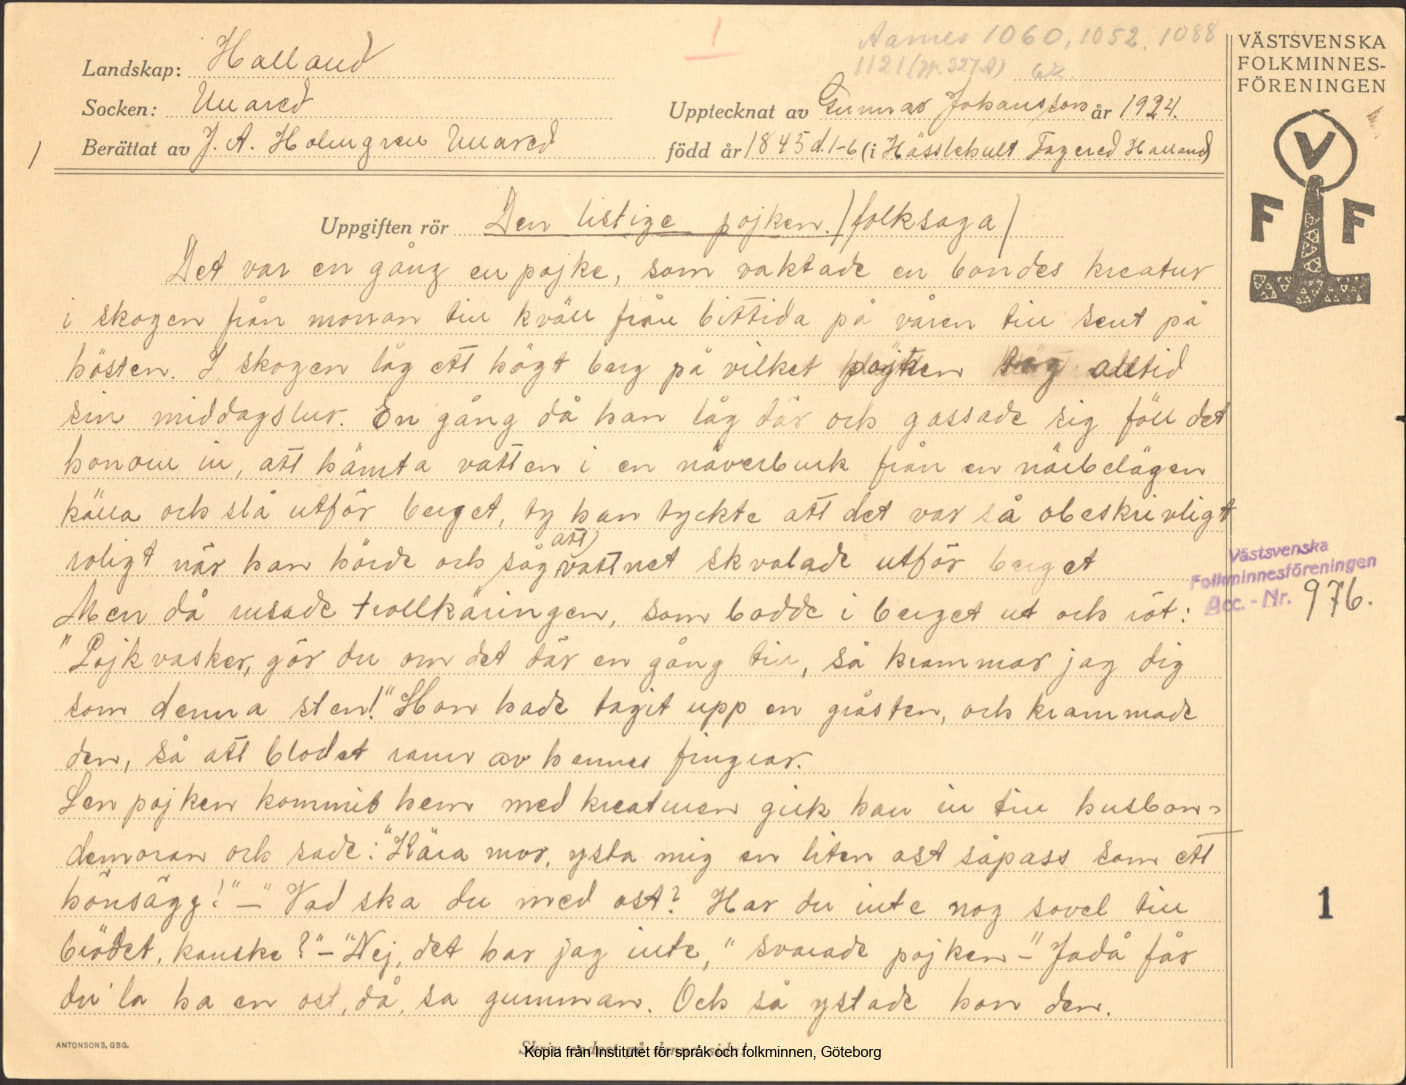 1
Aarnes 1060, 1052, 1088
1121 (jfr. 327A)
VÄSTSVENSKA
FOLKMINNES-
FÖRENINGEN
Landskap: Halland
Socken: Unnared
Upptecknat av Gunnar Johansson år 1924.
1
Berättat av J. A. Holmgren Unnared
född år 1845 d. 1-6 (i Hässlehult Fagered Halland)
V
F F
Uppgiften rör Den listige pojken. (folksaga)
Det var en gång en pojke, som vaktade en bondes kreatur
i skogen från morran till kväll från bittida på våren till sent på
hösten. I skogen låg ett högt berg på vilket pojken tog alltid
sin middagslur. En gång då han låg där och gassade sig föll det
honom in, att hämta vatten i en näverburk från en närbelägen
källa och slå utför berget, ty han tyckte att det var så obeskrivligt
roligt när han hörde och såg att vattnet skvalade utför berget
Men då rusade trollkäringen, som bodde i berget ut och röt:
"Pojkvasker, gör du om det där en gång till, så krammar jag dig
som denna sten!" Hon hade tagit upp en gråsten, och krammade
den, så att blodet rann av hennes fingrar.
Sen pojken kommit hem med kreaturen gick han in till husbon-
demoran och sade: "Kära mor, ysta mig en liten ost såpass som ett
hönsägg!" – "Vad ska du med ost? Har du inte nog sovel till
brödet, kanske?" – "Nej, det har jag inte," svarade pojken – "Jadå får
du la ha en ost, då, sa gumman. Och så ystade hon den.
Västsvenska
Folkminnesföreningen
Acc.-Nr. 976.
1
ANTONSONS, GBG.
Skriv endast på denna sida!
Kopia från Institutet för språk och folkminnen, Göteborg